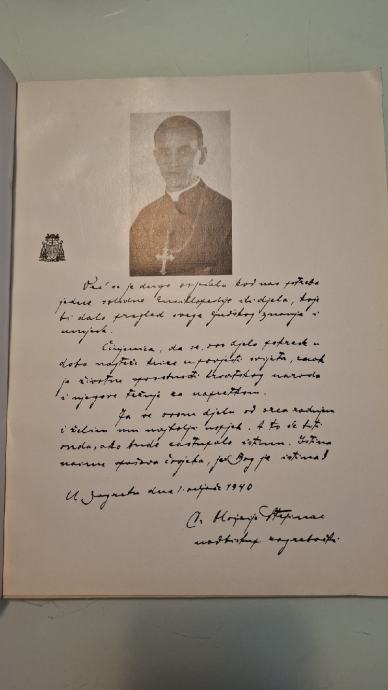 Već se je dugo osjećala kod nas potreba
jedne solidne Enciklopedije ili djela, koje
bi dalo pregled svega ljudskog znanja i
umjeća.
Činjenica, da se ovo djelo pokreće u
doba najteže krize u povijesti svijeta, znak
je životne sposobnosti hrvatskog naroda
i njegove težnje za napretkom.
Ja se ovom djelu od srca radujem
i želim mu najbolji uspjeh. A to će biti
onda, ako bude zastupalo istinu. Istina
naime oslobađa čovjeka, jer Bog je istina!
U Zagrebu dne 1. veljače 1940
Dr Alojzije Stepinac
nadbiskup zagrebački